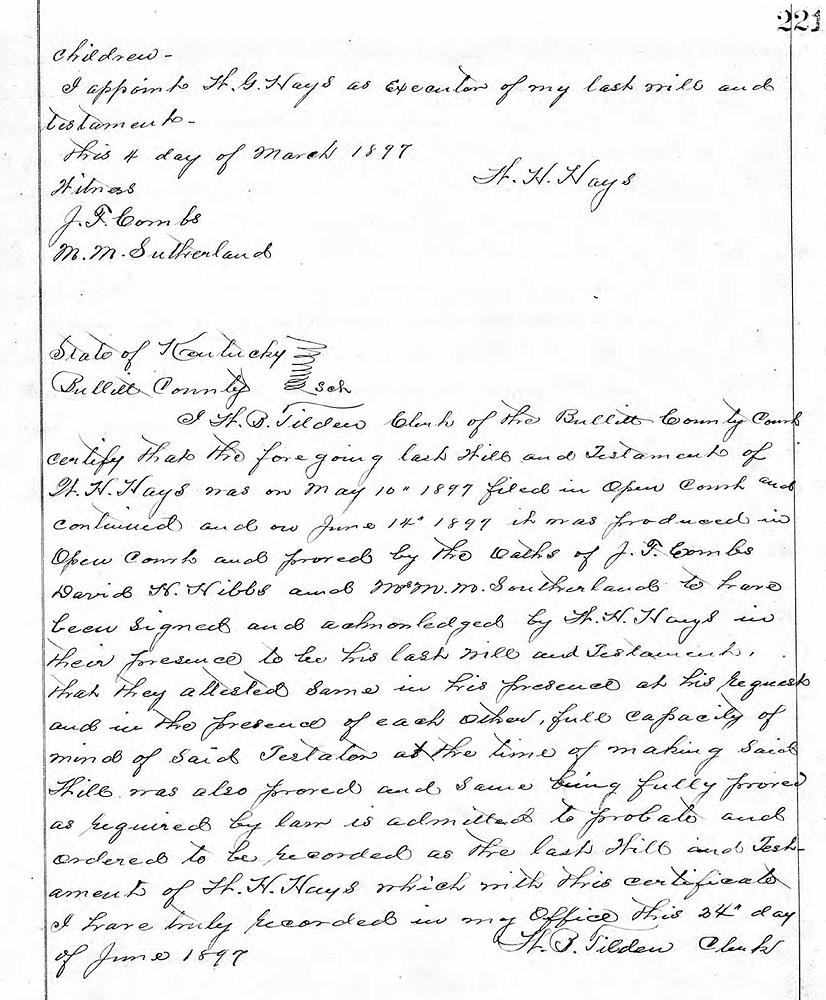 221
children -
I appoint W. G. Hays as Executor of my last will and
testament -
this 4 day of March 1897
W. H. Hays
Witness
J. F. Combs
M. M. Sutherland
State of Kentucky
Bullitt County } Sct
I W. B. Tilden Clerk of the Bullitt County Court
certify that the foregoing last Will and Testament of
W. H. Hays was on May 10" 1897 filed in Open Court and
continued and on June 14" 1897 it was produced in
Open Court and proved by the Oaths of J. F. Combs
David H. Hibbs and M. M. Southerland to have
been signed and acknowledged by W. H. Hays in
their presence to be his last will and Testament,
that they attested same in his presence at his request
and in the presence of each other, full capacity of
mind of said Testator at the time of making said
Will was also proved and same being fully proved
as required by law is admitted to probate and
ordered to be recorded as the last Will and Test-
ament of W. H. Hays which with this certificate
I have truly recorded in my Office this 24" day
of June 1897
W. B. Tilden Clerk